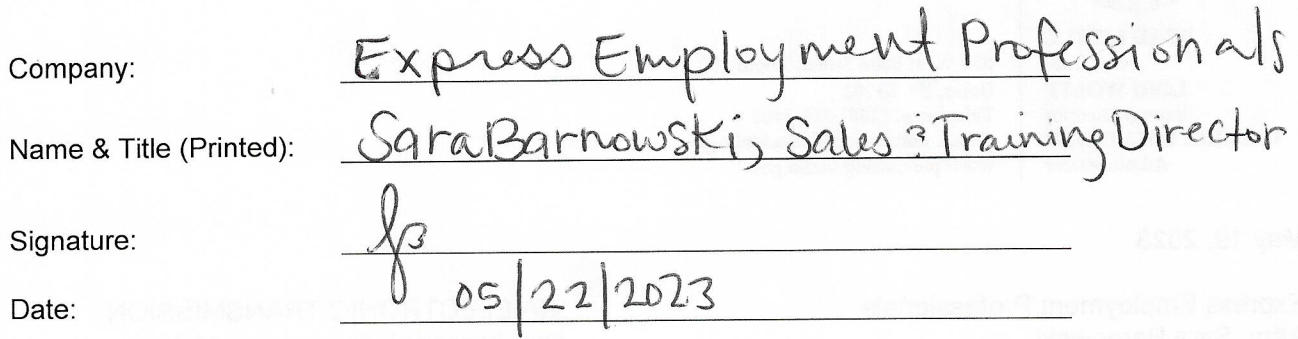 Company: Express Employment Professionals
Name & Title (Printed): Sara Barnowski, Sales & Training Director
Signature: SB
Date: 05/22/2023